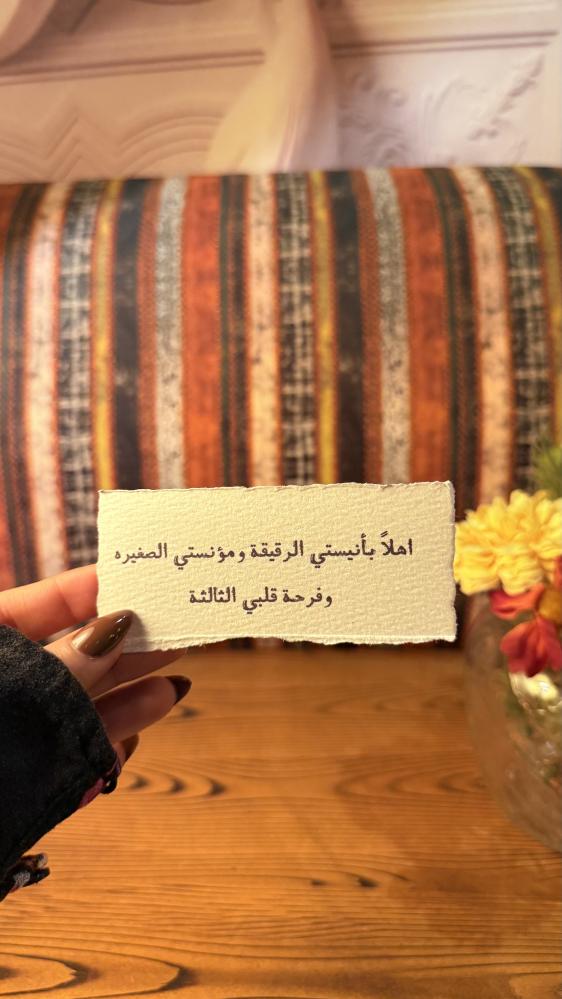 اهلاً بأنيستي الرقيقة ومؤنستي الصغيره
وفرحة قلبي الثالثة